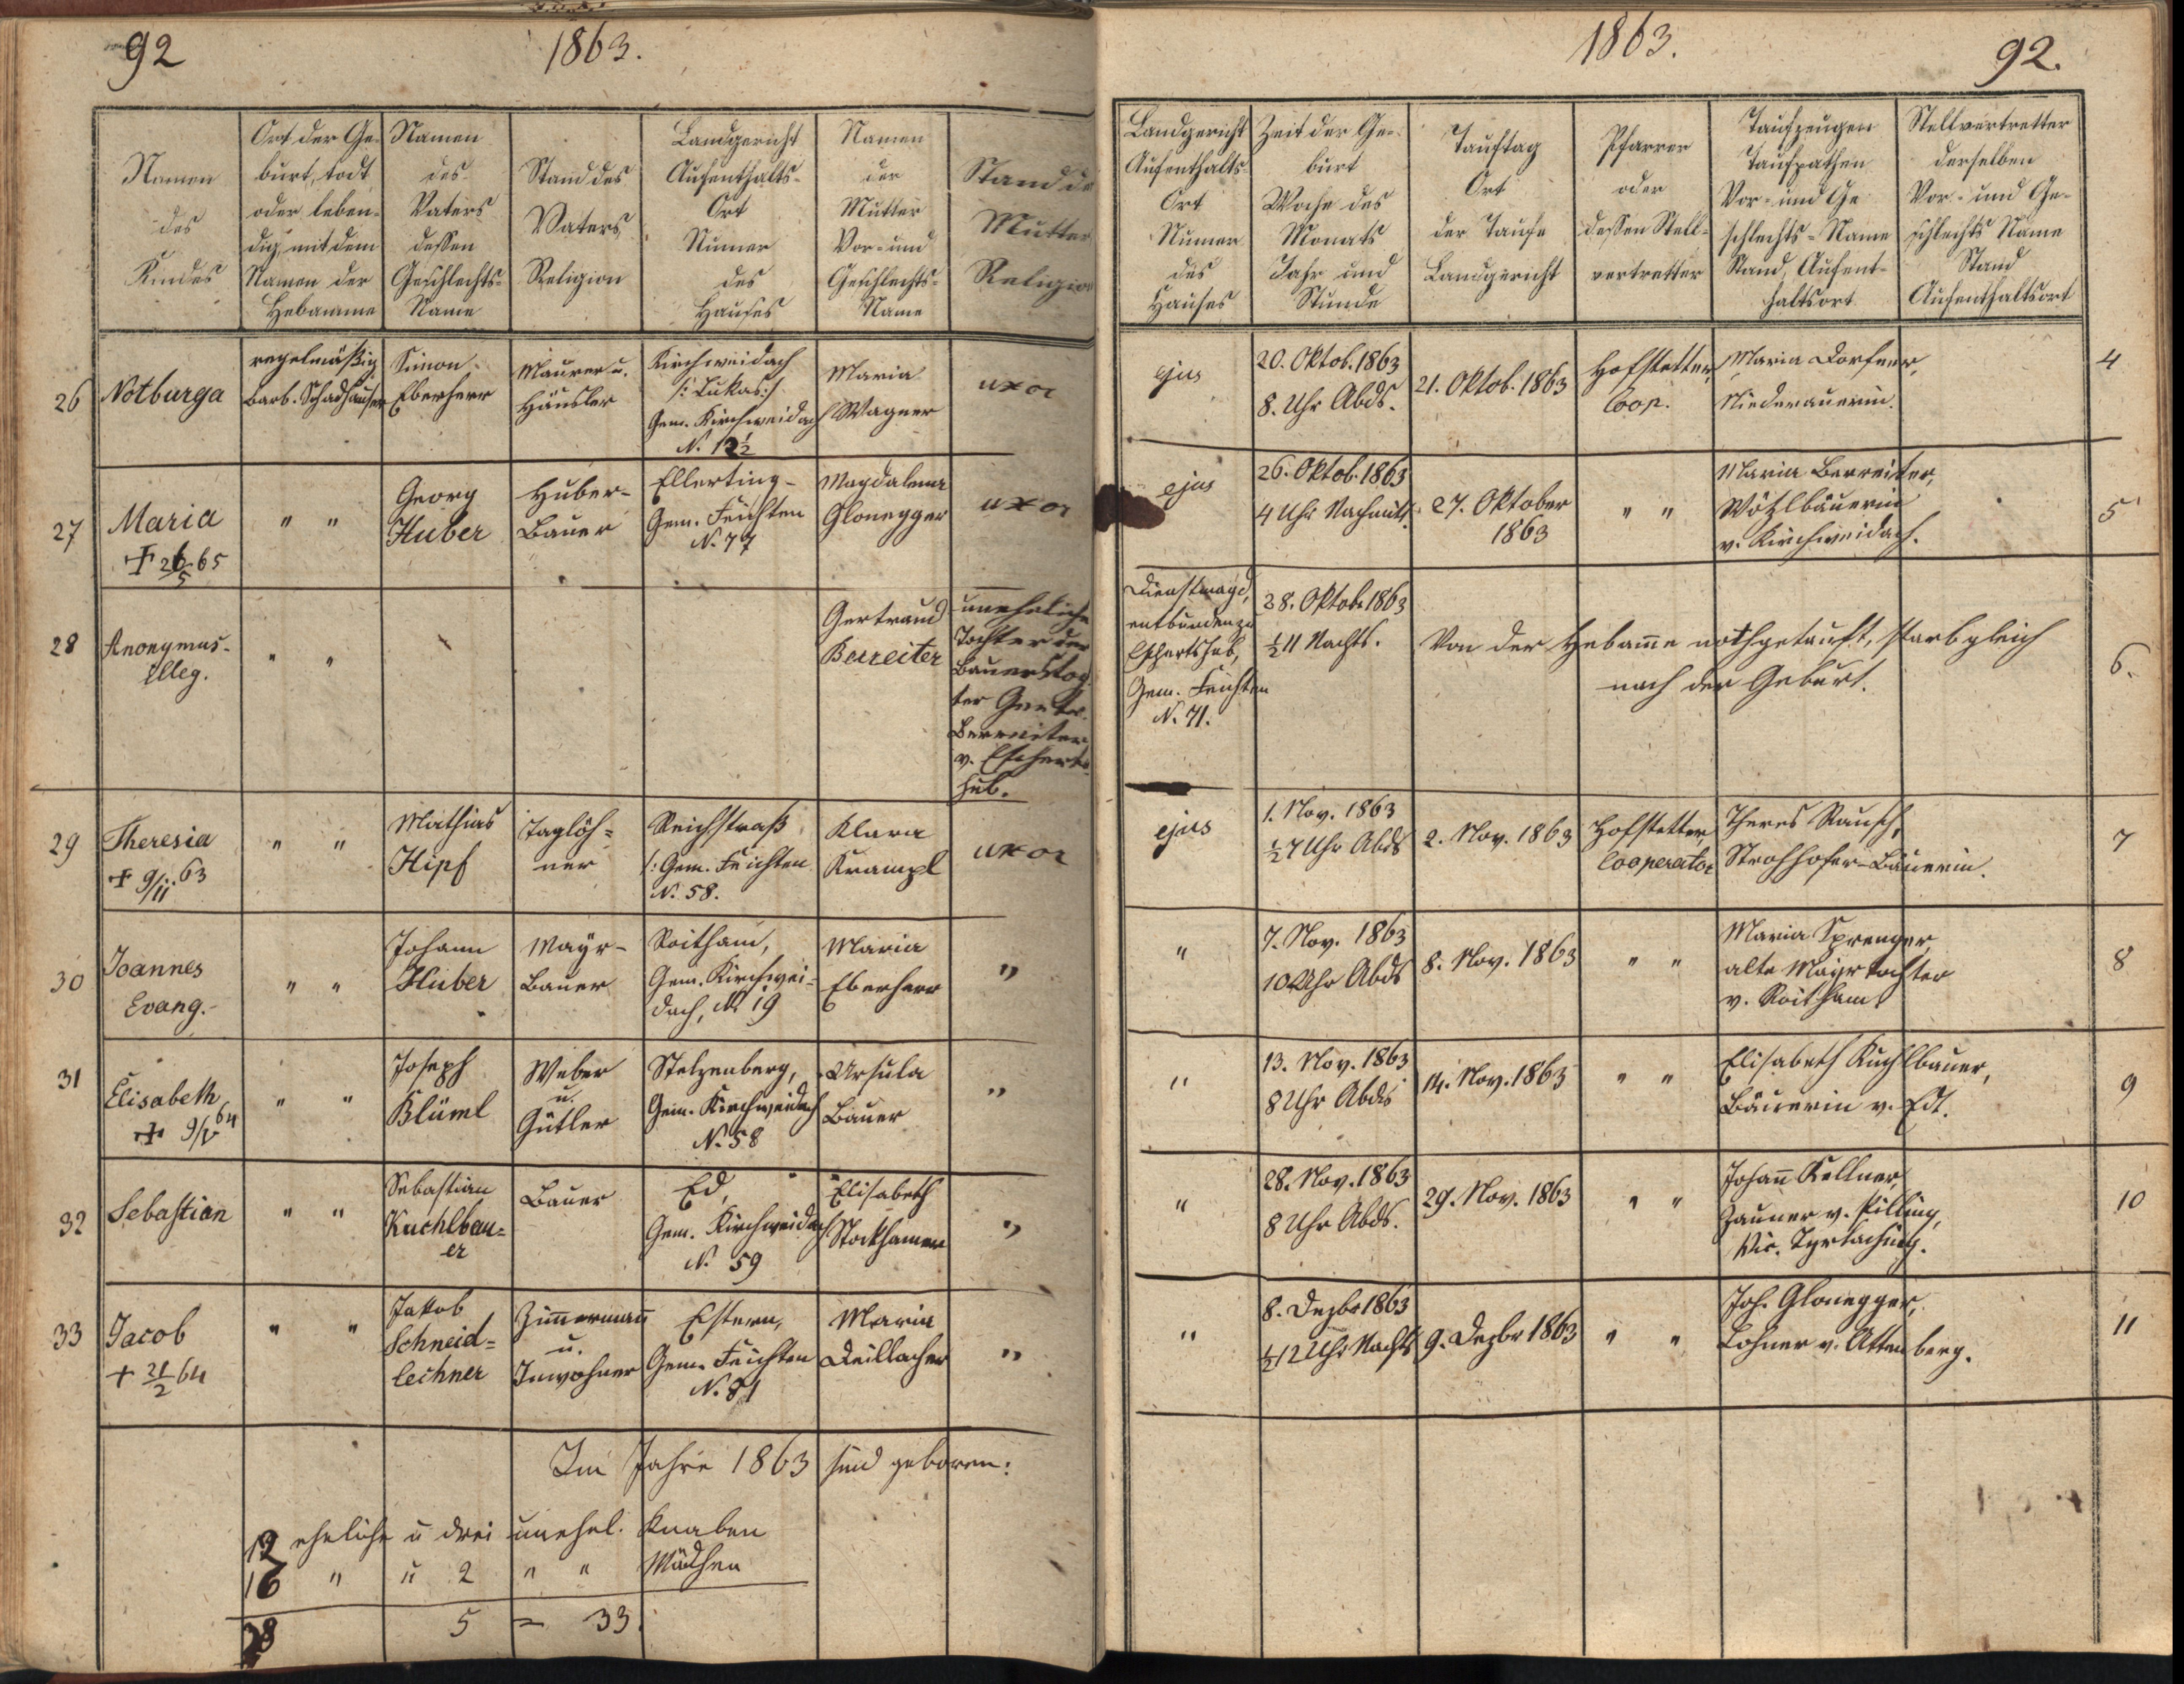 92
1863.
Namen
des
Kindes
Ort der Ge-
burt, todt
oder leben-
dig, mit dem
Namen der
Hebamme
Namen
des
Vaters
dessen
Geschlechts-
Name
Stand des
Vaters
Religion
Landgericht
Aufenthalts-
Ort
Numer
des
Hauses
Namen
der
Mutter
Vor- und
Geschlechts-
Name
Stand de
Mutter
Religion
26
Notburga
regelmäßig
Barb. Schadhauser
Simon
Eberherr
Maurer u.
Häusler
Kirchweidach
/: Lukas :/
Gem. Kirchweidach
N. 12½
Maria
Wagner
uxor
27
Maria
+ 26/5 65
" "
Georg
Huber
Huber-
Bauer
Ellerting-
Gem. Feichten
N. 77
Magdalena
Glonegger
uxor
28
Anonymus-
illeg.
" "
Gertraud
Berreiter
uneheliche
Tochter der
Bauerstoch
ter Gertr.
Berreiter
v. Escherts
hub.
29
Theresia
+ 9/11. 63
" "
Mathias
Hipf
Taglöh-
ner
Reichstraß
/: Gem. Feichten
N. 58.
Klara
Krampl
uxor
30
Joannes
Evang.-
" "
Johann
Huber
Mayr-
Bauer
Roitham,
Gem. Kirchwei-
dach, N. 19
Maria
Eberherr
"
31
Elisabeth
+ 9/V 64
" "
Joseph
Blüml
Weber
u.
Gütler
Stelzenberg,
Gem. Kirchweidach
N. 58
Ursula
Bauer
"
32
Sebastian
" "
Sebastian
Kuchlbau-
er
Bauer
Ed,
Gem. Kirchweidach
N. 59
Elisabeth
Stockhamer
"
33
Jacob
+ 21/2 64
" "
Jakob
Schneid-
lechner
Zimmermann
u.
Inwohner
Estern,
Gem. Feichten
N. 81
Maria
Deillacher
"
Im Jahre 1863 sind geboren:
12 eheliche u drei unehel. Knaben
16 " u 2 " " Mädchen
28 5 = 33.
1863.
92.
Landgericht
Aufenthalts-
Ort
Numer
des
Hauses
Zeit der Ge-
burt
Woche des
Monats
Jahr und
Stunde
Tauftag
Ort
der Taufe
Landgericht
Pfarrer
oder
dessen Stell-
vertretter
Taufzeugen
Taufpathen
Vor- und Ge
schlechts-Name
Stand, Aufent-
haltsort
Stellvertretter
derselben
Vor- und Ge-
schlechts Name
Stand
Aufenthaltsort
ejus
20. Oktob. 1863
8. Uhr Abds.
21. Oktob. 1863
Hofstetter,
Coop.
Maria Dorfner,
Niederauerin.
4
ejus
26. Oktob. 1863
4 Uhr Nachmitt.
27. Oktober
1863
" "
Maria Berreiter,
Wötzlbäuerin
v. Kirchweidach.
5
Dienstmagd,
entbunden zu
Eschertshub,
Gem. Feichten
N. 71.
28. Oktob. 1863
½ 11 Nachts.
Von der Hebamme nothgetauft, starb gleich
nach der Geburt.
6.
ejus
1. Nov. 1863
½ 7 Uhr Abds
2. Nov. 1863
Hofstetter,
Cooperator
Theres Rausch,
Strohhofer-Bäuerin.
7
"
7. Nov. 1863
10 Uhr Abds
8. Nov. 1863
" "
Maria Sprenger,
alte Mayrtochter
v. Roitham
8
"
13. Nov. 1863
8 Uhr Abds
14. Nov. 1863
" "
Elisabeth Kuchlbauer,
Bäuerin v. Edt.
9
"
28. Nov. 1863
8 Uhr Abds.
29. Nov. 1863
" "
Johann Kellner,
Zauner v. Pilling,
Vic. Tyrlaching.
10
"
8. Dezbr 1863
½ 12 Uhr Nachts
9. Dezbr 1863
" "
Joh. Glonegger,
Lohner v. Attenberg.
11